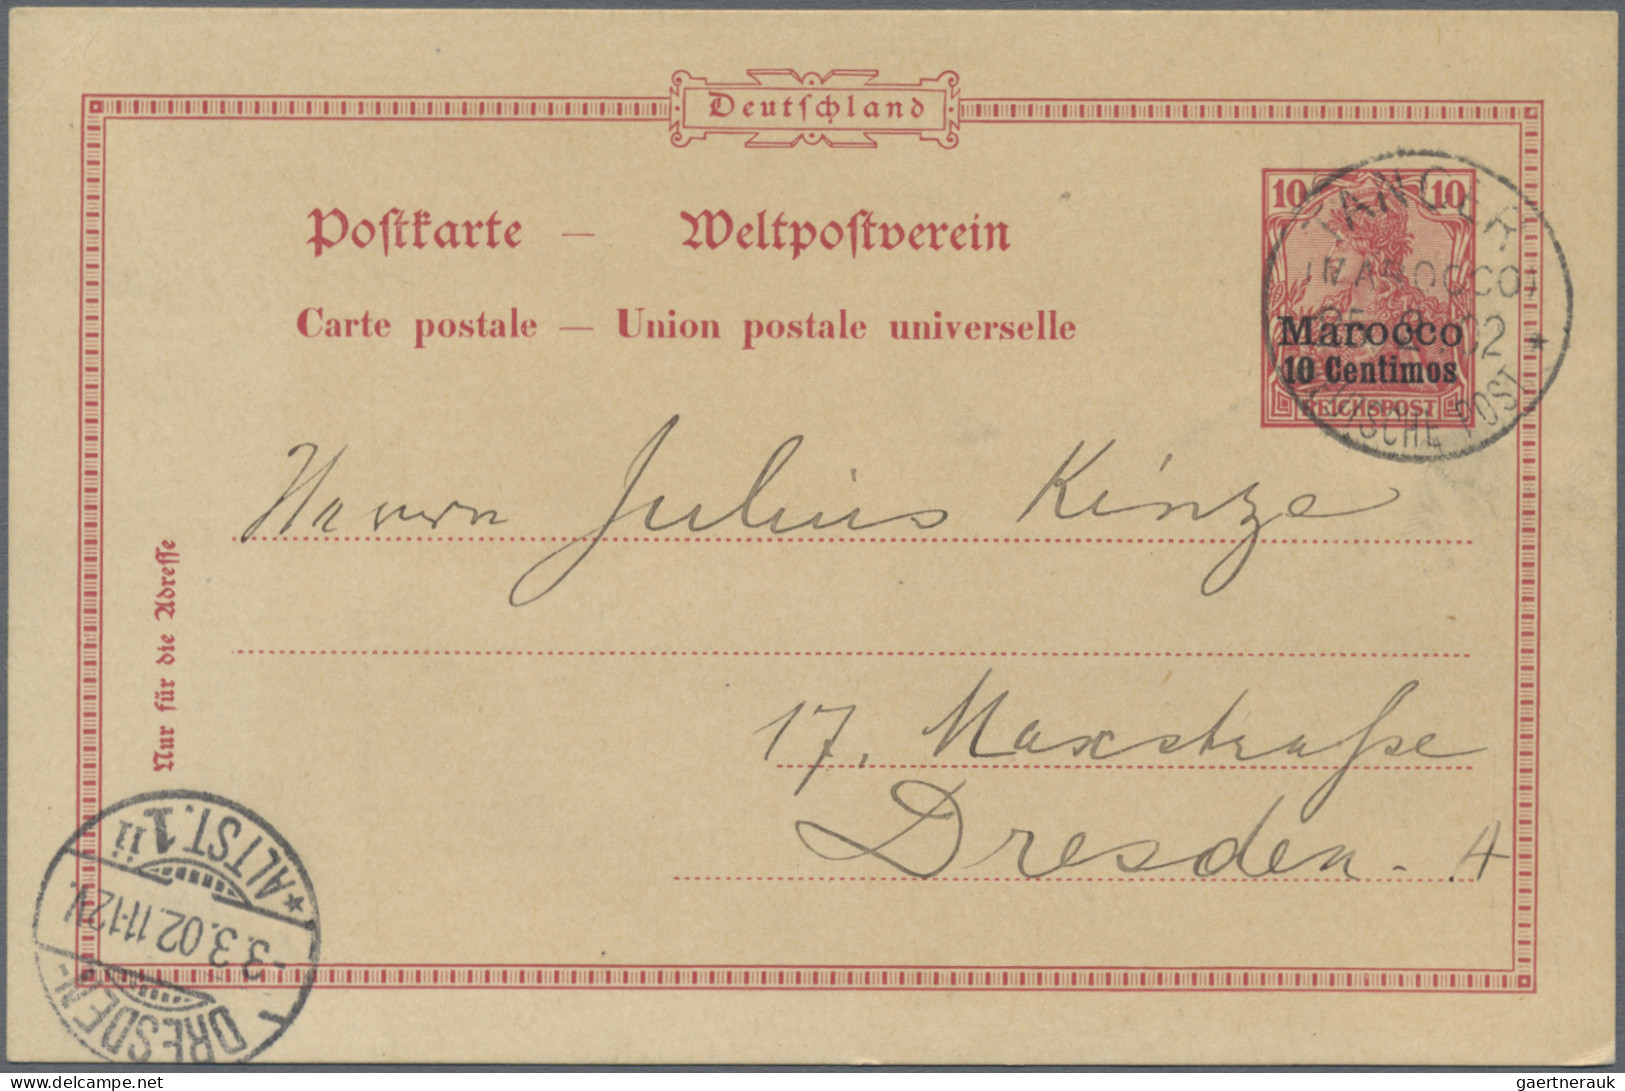 Deutſchland
Poſtkarte — Weltpoſtverein
Carte postale — Union postale universelle
10 10
Marocco
10 Centimos
REICHSPOST
TANGER
(MAROCCO)
02 *
DEUTSCHE POST
Herrn Julius Kinze
17, Maxstraße
Dresden. A
Nur für die Adreſſe
DRESDEN-
-3.3.02.11-12N.
*ALTST.1
delcampe.net
gaertnerauk